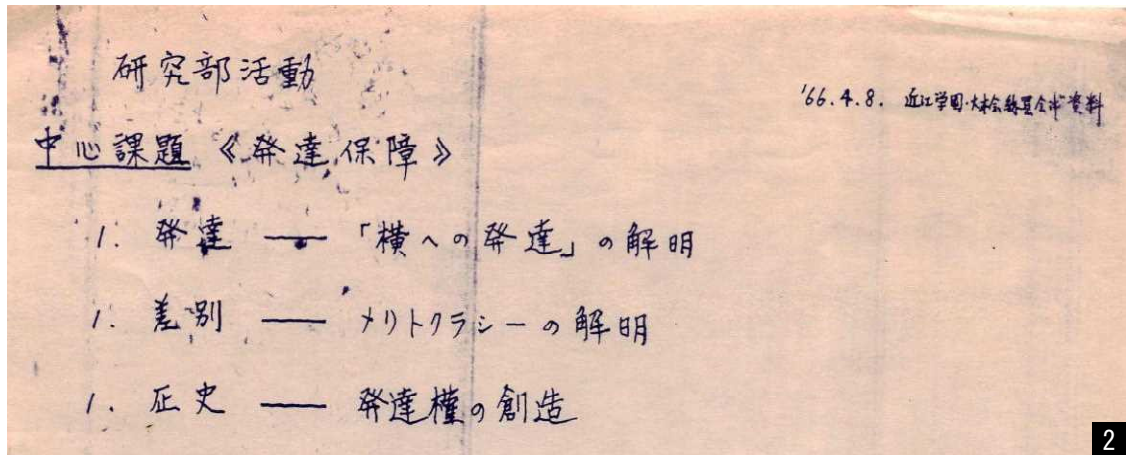 研究部活動
'66.4.8. 近江学園・大木会総員会議資料
中心課題 《発達保障》
1. 発達 ── 「横への発達」の解明
1. 差別 ── メリトクラシーの解明
1. 歴史 ── 発達権の創造
2